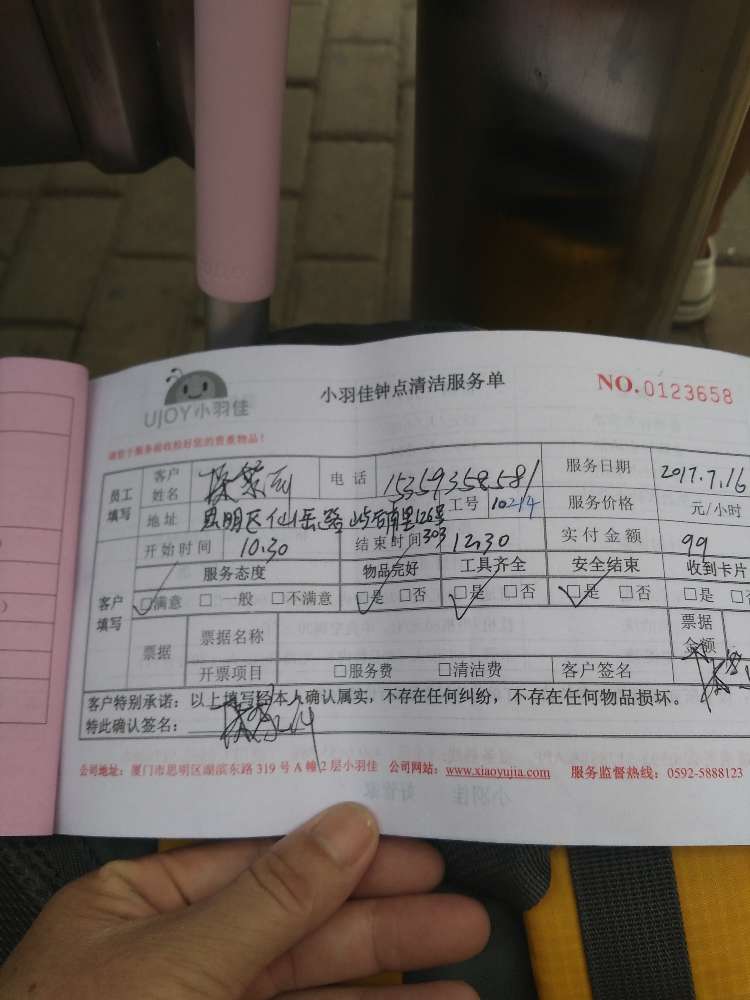 UJOY小羽佳
小羽佳钟点清洁服务单
NO.0123658
请您于服务前收捡好您的贵重物品!
员工填写 客户姓名 电话 15359358581 服务日期 2017.7.16
地址 思明区仙岳路 126号303 工号 10214 服务价格 元/小时
开始时间 10.30 结束时间 12.30 实付金额 99
客户填写 服务态度 物品完好 工具齐全 安全结束 收到卡片
□满意 □一般 □不满意 □是 □否 □是 □否 □是 □否 □是 □否
票据 票据名称 票据金额
开票项目 □服务费 □清洁费 客户签名
客户特别承诺:以上填写经本人确认属实,不存在任何纠纷,不存在任何物品损坏。
特此确认签名:
公司地址:厦门市思明区湖滨东路 319 号 A 幢 2 层小羽佳 公司网站:www.xiaoyujia.com 服务监督热线:0592-5888123